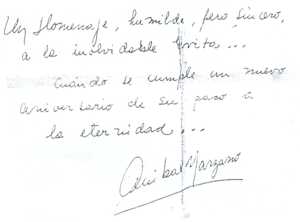 Un Homenaje, humilde, pero sincero,
a la inolvidable Evita...
Cuando se cumple un nuevo
aniversario de su paso a
la eternidad...
Anibal Marzano